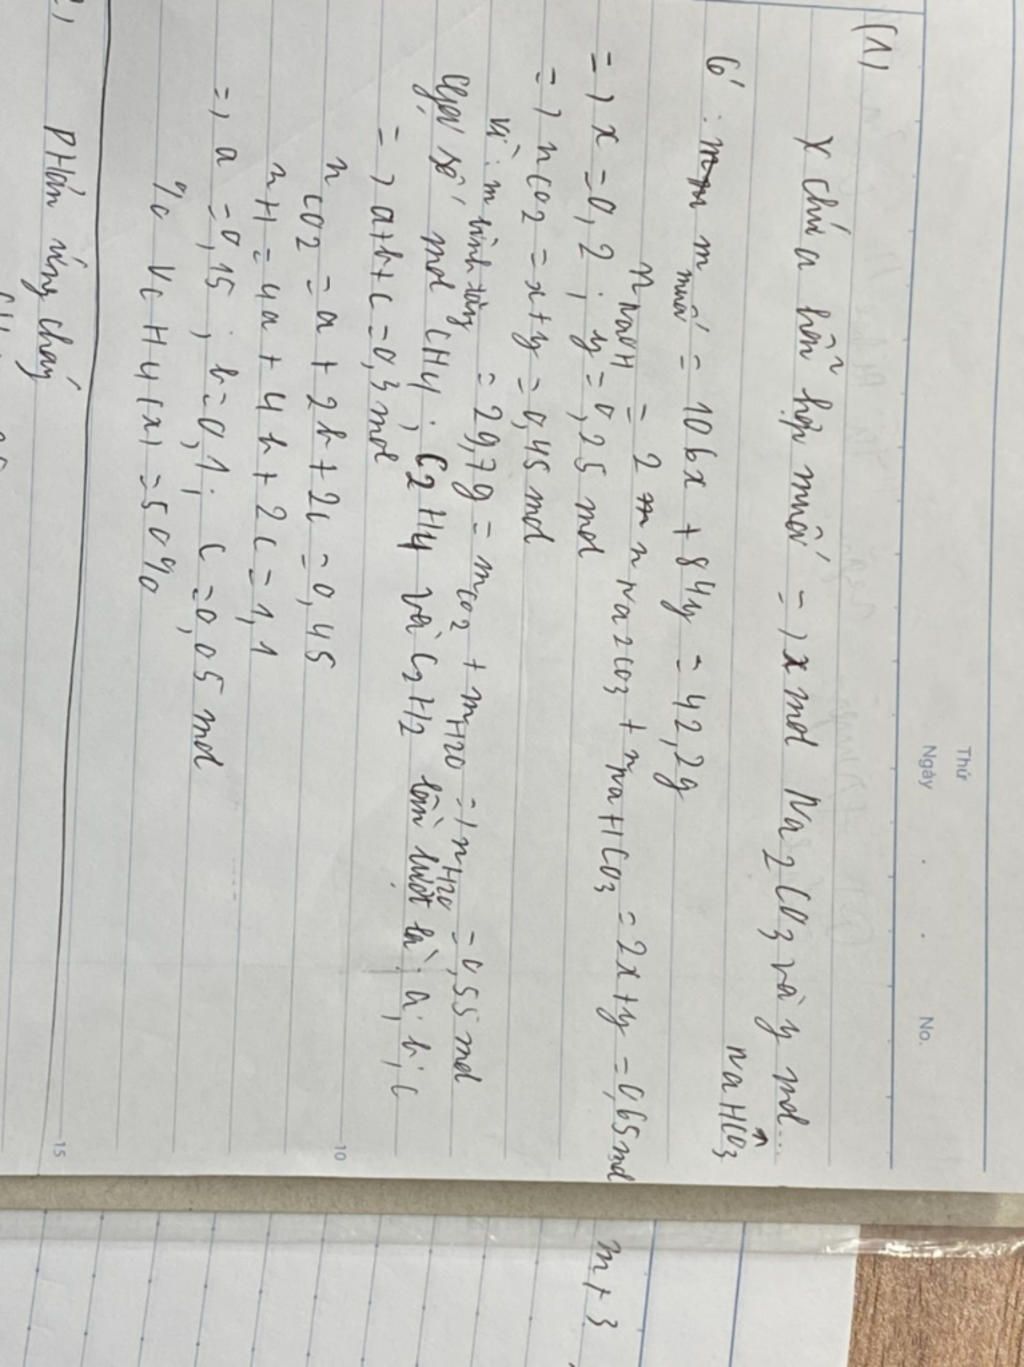 Thứ
Ngày
No.
(1)
X chứa hỗn hợp muối => x mol Na2CO3 và y mol...
NaHCO3
6' : m muối = 106x + 84y = 42,2g
n NaOH = 2 n Na2CO3 + n NaHCO3 = 2x+y = 0,65mol
=> x = 0,2 ; y = 0,25 mol
=> nCO2 = x+y = 0,45 mol
Vì : m bình tăng = 29,7g = mCO2 + mH2O => nH2O = 0,55 mol
Gọi số mol CH4 ; C2H4 và C2H2 lần lượt là : a ; b ; c
=> a+b+c = 0,3 mol
nCO2 = a + 2b + 2c = 0,45
nH = 4a + 4b + 2c = 1,1
=> a = 0,15 ; b = 0,1 ; c = 0,05 mol
% VCH4(x) = 50%
10
15
Phản ứng cháy
m+3